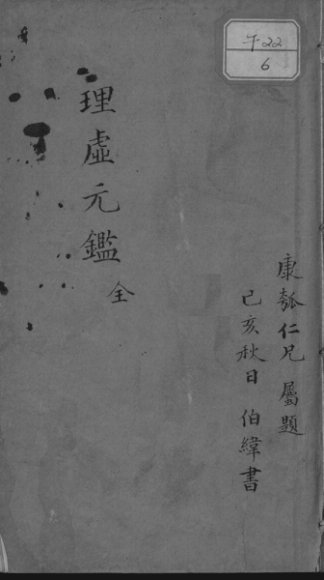 子22
6
康瓠仁兄屬題
己亥秋日 伯緯書
理虛元鑑 全